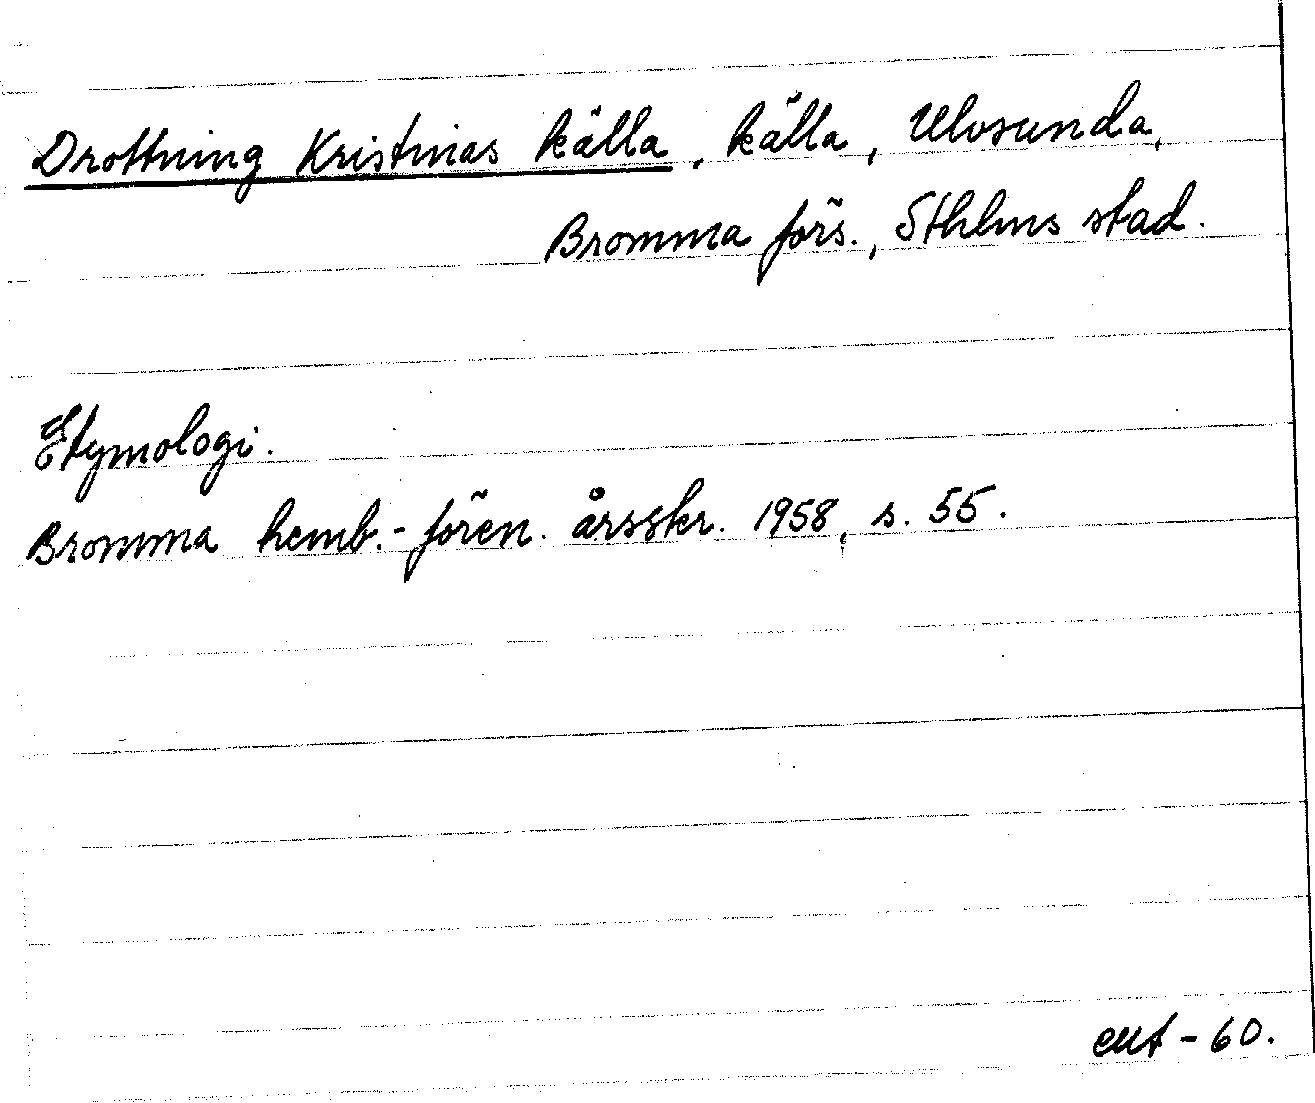 Drottning Kristinas källa, källa, Ulvsunda,
Bromma förs., Sthlms stad.
Etymologi.
Bromma hemb.-fören. årsskr. 1958, s. 55.
- 60.